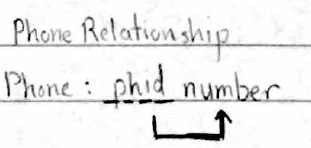 Phone Relationship
Phone: phid number